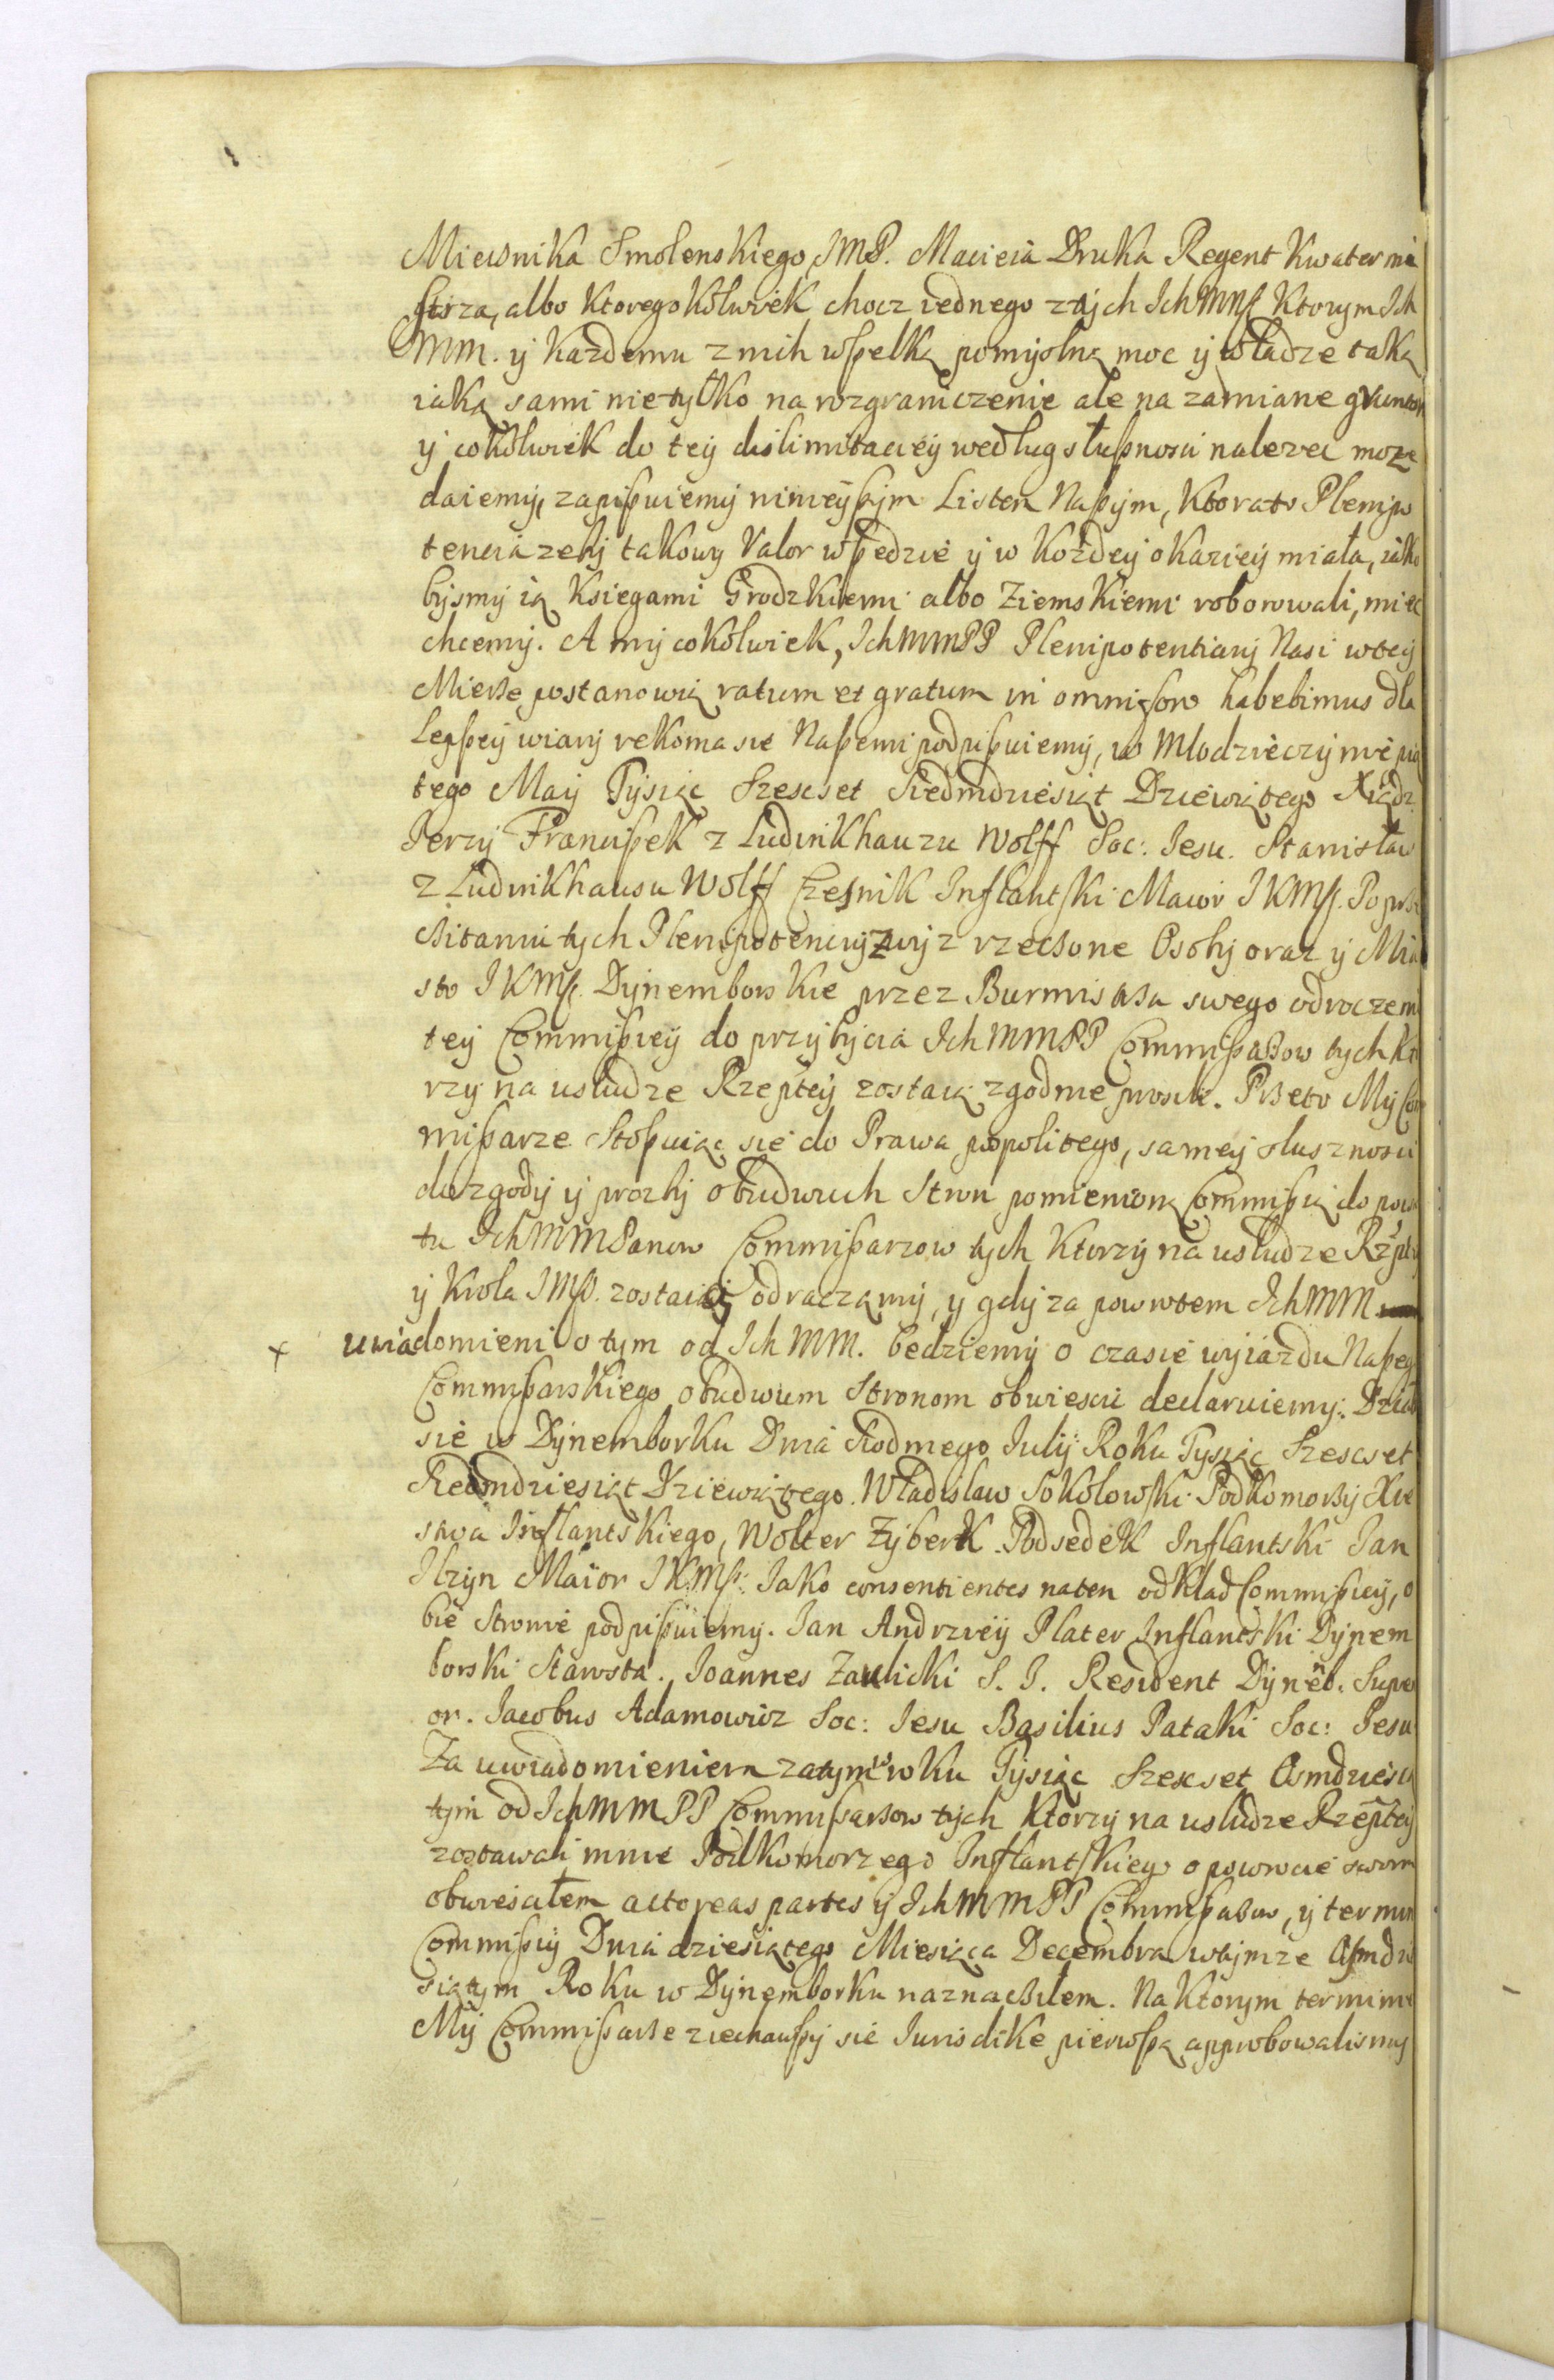 Miecznika Smolenskiego, JMP. Macieia Druka Regent Kwatermi
strza, albo ktoregokolwiek chocz iednego z tych IchMMſſ. Ktorym Ich
MM. ÿ każdemu z nich wßelką pomyslną moc ÿ władze taką
iaką sami nie tylko na rozgraniczenie ale na zamiane gruntow
ÿ cokolwiek do teÿ dislimitacieÿ według słußnosci nalezec moze
daiemÿ, zapißuiemÿ ninieÿßÿm Listem Naßÿm, Ktorato Plenipo
tencia zebÿ takowy Valor wßędzie ÿ w Kożdeÿ okazieÿ miała, iako
bÿsmÿ ią Ksiegami Grodzkiemi albo Ziemskiemi roborowali, miec
chcemÿ. A mÿ cokolwiek, IchMMPP Plenipotentiarÿ Nasi w teÿ
Mierze postanowią ratum et gratum in omni foro habebimus dla
Lepßeÿ wiarÿ rekoma sie Naßemi podpißuiemÿ, w Mlodzieczynie pią
tego Maÿ Tysiąc Szescset Siedmdziesiąt Dziewiątego Xiądz
Jerzÿ Francißek z Ludinkhauzu Wolff Soc: Iesu. Stanisław
z Ludinkhausu Wolff Czesnik Inflantski Maior IKMſſ. Po prze
czitaniu tych Plenipotenciÿ zwÿz rzeczone Osobÿ oraz ÿ Mia
sto IKMſſ. Dynemborskie przez Burmistrza swego odroczeni
teÿ Commißieÿ do przÿbÿcia IchMMPP Commißarzow tych Kto
rzy na usłudze Rzeptey zostaią zgodnie prosili. Przeto Mÿ Com
mißarze Stosuiąc się do Prawa pospolitego, sameÿ słusznosci
do zgodÿ ÿ prozbÿ obudwuch Stron pomienioną Commißią do powro
tu IchMMPanow Commißarzow tych Ktorzÿ na usłudze Rzptey
ÿ Krola JMſſ. zostaią odraczamÿ, ÿ gdÿ za powrotem IchMM
× uwiadomieni o tym od Ich MM. bedziemÿ o czasie wyiazdu Naßeg
Commißarskiego obudwum Stronom obwiescic declaruiemy. Działo
sie w Dynemborku Dnia Siodmego Iulÿ Roku Tysiąc Szescset
Siedmdziesiąt Dziewiątego. Władislaw Sokołowski Podkomorzÿ Xie
stwa Inflantskiego, Wolter Zyberk Podsedek Inflantski Jan
Ilzyn Maior IKMſſ: Iako consentientes na ten odkład Commißieÿ, o
bie Stronie podpißuiemÿ. Ian Andrzeÿ Plater Inflantski Dynem
borski Starosta. Ioannes Zaulicki S. I. Resident Dyneb. Superi
or. Iacobus Adamowicz Soc: Iesu Basilius Pataki Soc: Iesu
Za uwiadomieniem zatym w roku Tysiąc Szescset Osmdziesią
tym od IchMMPP Commißarzow tych Ktorzÿ na usłudze Rzeptey
zostawali mnie Podkomorzego Inflantskiego o powrocie swoim
obwiesciłem actoreas partes ÿ IchMMPP Commißarzow, ÿ termin
Commißiÿ Dnia dziesiątego Miesiąca Decembra w tymze Osmdzie
siątym Roku w Dynemborku naznacziłem. Na Ktorym terminie
Mÿ Commißarze ziechawßÿ sie Iurisdike pierwßą approbowalismÿ